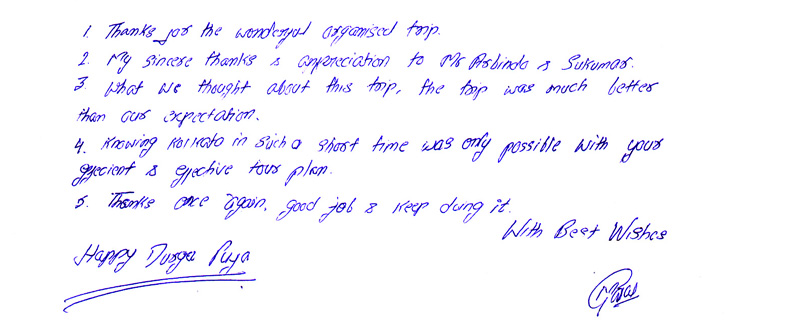 1. Thanks for the wonderful organised trip.
2. My sincere thanks & appreciation to Mr Arbinda & Sukumar.
3. What we thought about this trip, the trip was much better
than our expectation.
4. Knowing Kolkata in such a short time was only possible with your
efficient & effective tour plan.
5. Thanks once again, good job & keep doing it.
With Best Wishes
Happy Durga Puja